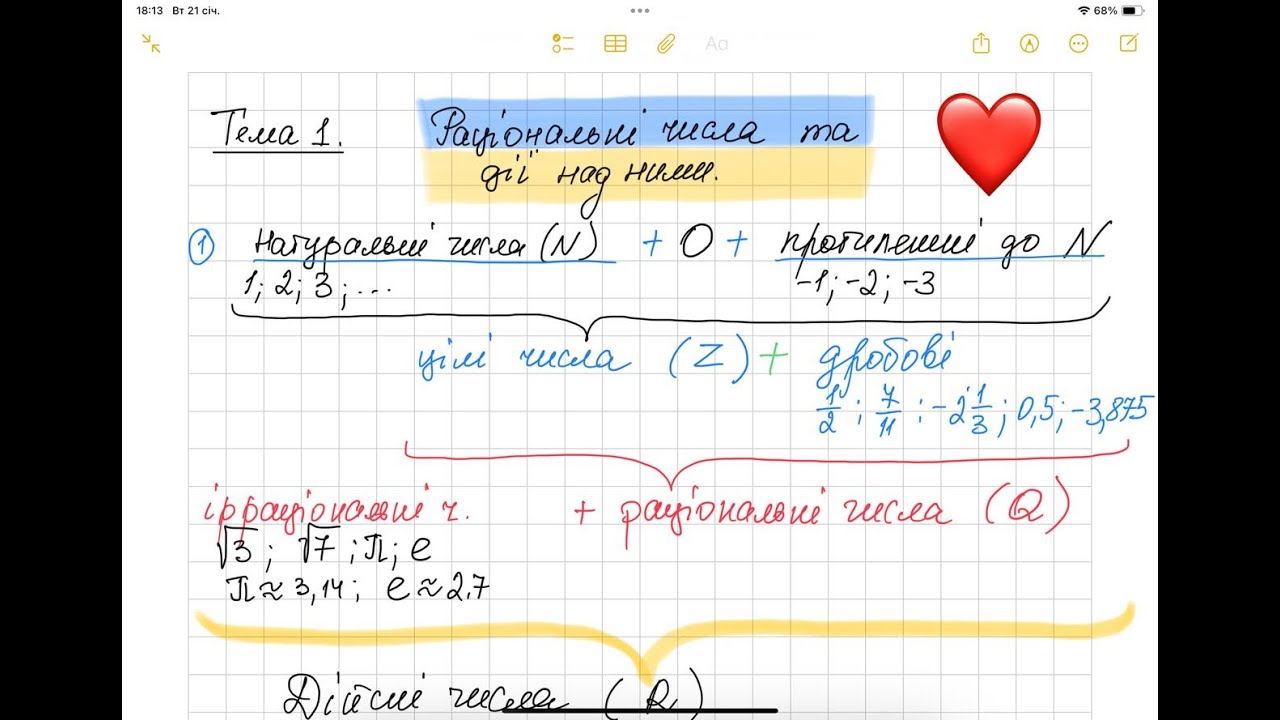 18:13 Вт 21 січ. 68%
Aa
Тема 1. Раціональні числа та
дії над ними.
1 натуральні числа (N) + 0 + протилежні до N
1; 2; 3; ... -1; -2; -3
цілі числа (Z) + дробові
1/2; 7/11; -2 1/3; 0,5; -3,875
ірраціональні ч. + раціональні числа (Q)
√3; √7; π; e
π ≈ 3,14; e ≈ 2.7
Дійсні числа (R)